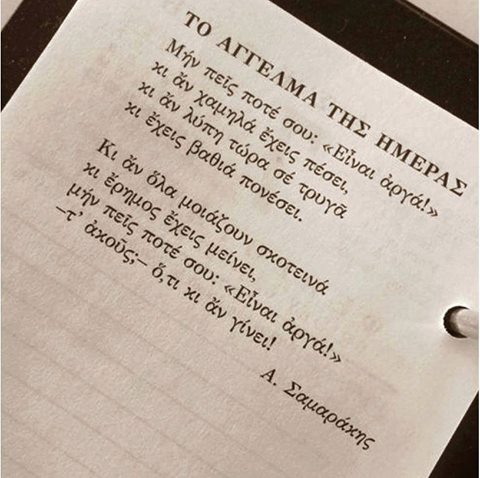 ΤΟ ΑΓΓΕΛΜΑ ΤΗΣ ΗΜΕΡΑΣ
Μήν πεῖς ποτέ σου: «Εἶναι ἀργά!»
κι ἄν χαμηλά ἔχεις πέσει,
κι ἄν λύπη τώρα σέ τρυγᾶ
κι ἔχεις βαθιά πονέσει.
Κι ἄν ὅλα μοιάζουν σκοτεινά
κι ἔρημος ἔχεις μείνει,
μήν πεῖς ποτέ σου: «Εἶναι ἀργά!»
–τ' ἀκοῦς;– ὅ,τι κι ἄν γίνει!
Α. Σαμαράκης